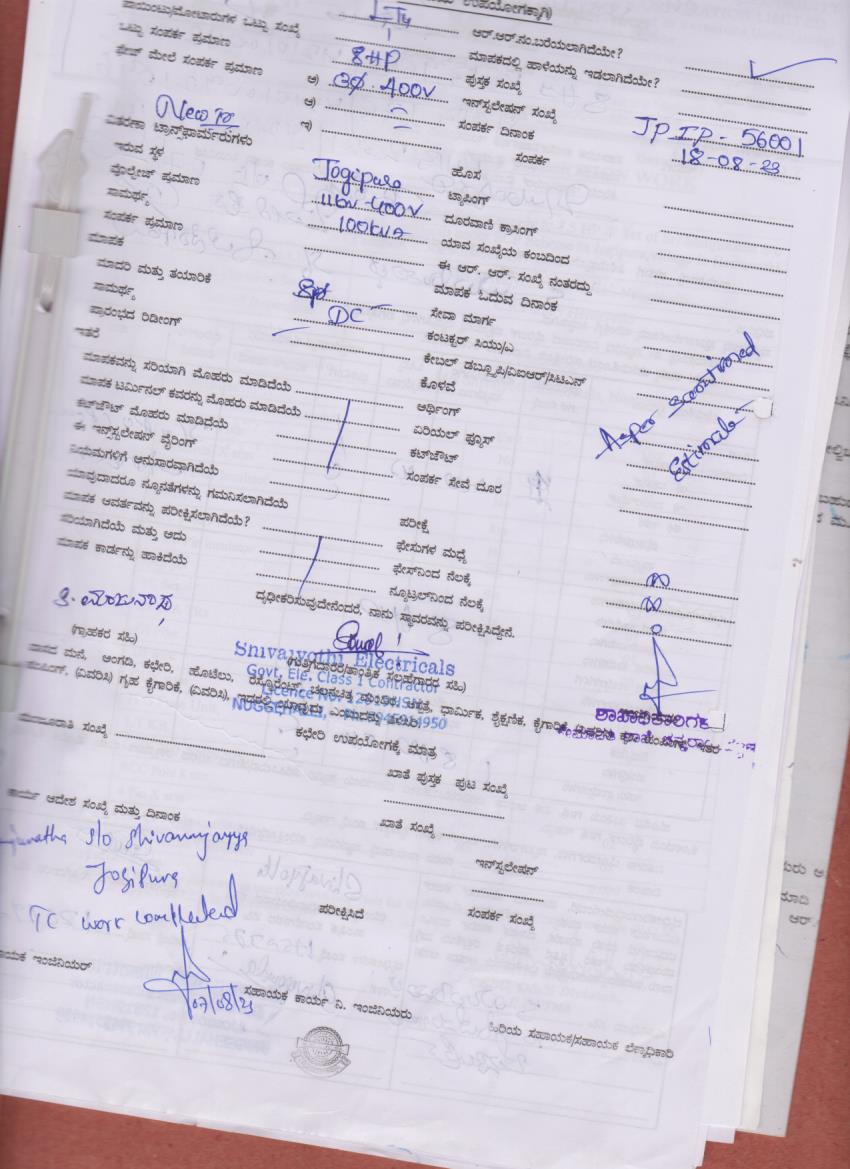 ಉಪಯೋಗಕ್ಕಾಗಿ)
ಪಾಯಿಂಟು/ಮೋಟಾರುಗಳ ಒಟ್ಟು ಸಂಖ್ಯೆ LT4 ಆರ್.ಆರ್.ನಂ.ಬರೆಯಲಾಗಿದೆಯೇ?
ಒಟ್ಟು ಸಂಪರ್ಕ ಪ್ರಮಾಣ 1 ಮಾಪಕದಲ್ಲಿ ಹಾಳೆಯನ್ನು ಇಡಲಾಗಿದೆಯೇ?
ಫೇಸ್ ಮೇಲೆ ಸಂಪರ್ಕ ಪ್ರಮಾಣ 8HP ಪುಸ್ತಕ ಸಂಖ್ಯೆ
ಅ) 3Ø 400V ಇನ್‌ಸ್ಟಲೇಷನ್ ಸಂಖ್ಯೆ JPIP-56001
ಆ) ಸಂಪರ್ಕ ದಿನಾಂಕ 18-08-23
ಇ) ಸಂಪರ್ಕ
New
ವಿತರಣಾ ಟ್ರಾನ್ಸ್‌ಫಾರ್ಮರುಗಳು ಹೊಸ
ಇರುವ ಸ್ಥಳ Jogipura ಟ್ಯಾಪಿಂಗ್
ವೋಲ್ಟೇಜ್ ಪ್ರಮಾಣ 11kv-400V ದೂರವಾಣಿ ಕ್ರಾಸಿಂಗ್
ಸಾಮರ್ಥ್ಯ 100kVA ಯಾವ ಸಂಖ್ಯೆಯ ಕಂಬದಿಂದ
ಸಂಪರ್ಕ ಪ್ರಮಾಣ ಈ ಆರ್. ಆರ್. ಸಂಖ್ಯೆ ನಂತರದ್ದು
ಮಾಪಕ ಮಾಪಕ ಓದುವ ದಿನಾಂಕ
ಮಾದರಿ ಮತ್ತು ತಯಾರಿಕೆ ಸೇವಾ ಮಾರ್ಗ
ಸಾಮರ್ಥ್ಯ DC ಕಂಟಕ್ಟರ್ ಸಿಯು/ಎ
ಪ್ರಾರಂಭದ ರಿಡೀಂಗ್ ಕೇಬಲ್ ಡಬ್ಲ್ಯೂಪಿ/ವಿಐಆರ್/ಸಿಟಿಎನ್
ಇತರೆ ಕೊಳವೆ
ಮಾಪಕವನ್ನು ಸರಿಯಾಗಿ ಮೊಹರು ಮಾಡಿದೆಯೆ ಆರ್ಥಿಂಗ್
As per Sanctioned
Estimate
ಮಾಪಕ ಟರ್ಮಿನಲ್ ಕವರನ್ನು ಮೊಹರು ಮಾಡಿದೆಯೆ ಏರಿಯಲ್ ಫ್ಯೂಸ್
ಕಟ್‌ಔಟ್ ಮೊಹರು ಮಾಡಿದೆಯೆ ಕಟ್‌ಔಟ್
ಈ ಇನ್‌ಸ್ಟಲೇಷನ್ ವೈರಿಂಗ್ ಸಂಪರ್ಕ ಸೇವೆ ದೂರ
ನಿಯಮಗಳಿಗೆ ಅನುಸಾರವಾಗಿದೆಯೆ
ಯಾವುದಾದರೂ ನ್ಯೂನತೆಗಳನ್ನು ಗಮನಿಸಲಾಗಿದೆಯೆ ಪರೀಕ್ಷೆ
ಮಾಪಕ ಆವರ್ತವನ್ನು ಪರೀಕ್ಷಿಸಲಾಗಿದೆಯೆ? ಫೇಸುಗಳ ಮಧ್ಯೆ ∞
ಸರಿಯಾಗಿದೆಯೆ ಮತ್ತು ಅದು ಫೇಸ್‌ನಿಂದ ನೆಲಕ್ಕೆ ∞
ಮಾಪಕ ಕಾರ್ಡನ್ನು ಹಾಕಿದೆಯೆ ನ್ಯೂಟ್ರಲ್‌ನಿಂದ ನೆಲಕ್ಕೆ 0
ದೃಢೀಕರಿಸುವುದೇನೆಂದರೆ, ನಾನು ಸ್ಥಾವರವನ್ನು ಪರೀಕ್ಷಿಸಿದ್ದೇನೆ.
(ಗ್ರಾಹಕರ ಸಹಿ) (ಗುತ್ತಿಗೆದಾರರ/ತಾಂತ್ರಿಕ ಸಲಹೆಗಾರರ ಸಹಿ)
Shivajyothi Electricals
Govt, Ele. Class 1 Contractor
ಶಾಖಾಧಿಕಾರಿಗಳ
ವಾಸದ ಮನೆ, ಅಂಗಡಿ, ಕಛೇರಿ, ಹೊಟೆಲು, ರೆಸ್ಟೂರೆಂಟ್, ಚಲನಚಿತ್ರ ಮಂದಿರ, ಆಸ್ಪತ್ರೆ, ಧಾರ್ಮಿಕ, ಶೈಕ್ಷಣಿಕ, ಕೈಗಾರಿಕೆ
(ವಿವರಿಸಿ) ಗೃಹ ಕೈಗಾರಿಕೆ, (ವಿವರಿಸಿ),
ಕಛೇರಿ ಉಪಯೋಗಕ್ಕೆ ಮಾತ್ರ
ಮಂಜೂರಾತಿ ಸಂಖ್ಯೆ ಖಾತೆ ಪುಸ್ತಕ ಪುಟ ಸಂಖ್ಯೆ
ಕಾರ್ಯ ಆದೇಶ ಸಂಖ್ಯೆ ಮತ್ತು ದಿನಾಂಕ ಖಾತೆ ಸಂಖ್ಯೆ
s/o Shivannjayya
Jogipura ಇನ್‌ಸ್ಟಲೇಷನ್
TC work completed ಪರೀಕ್ಷಿಸಿದೆ ಸಂಪರ್ಕ ಸಂಖ್ಯೆ
07/08/23
ಇಂಜಿನಿಯರ್ ಸಹಾಯಕ ಕಾರ್ಯ ನಿ. ಇಂಜಿನಿಯರು ಹಿರಿಯ ಸಹಾಯಕ/ಸಹಾಯಕ ಲೆಕ್ಕಾಧಿಕಾರಿ